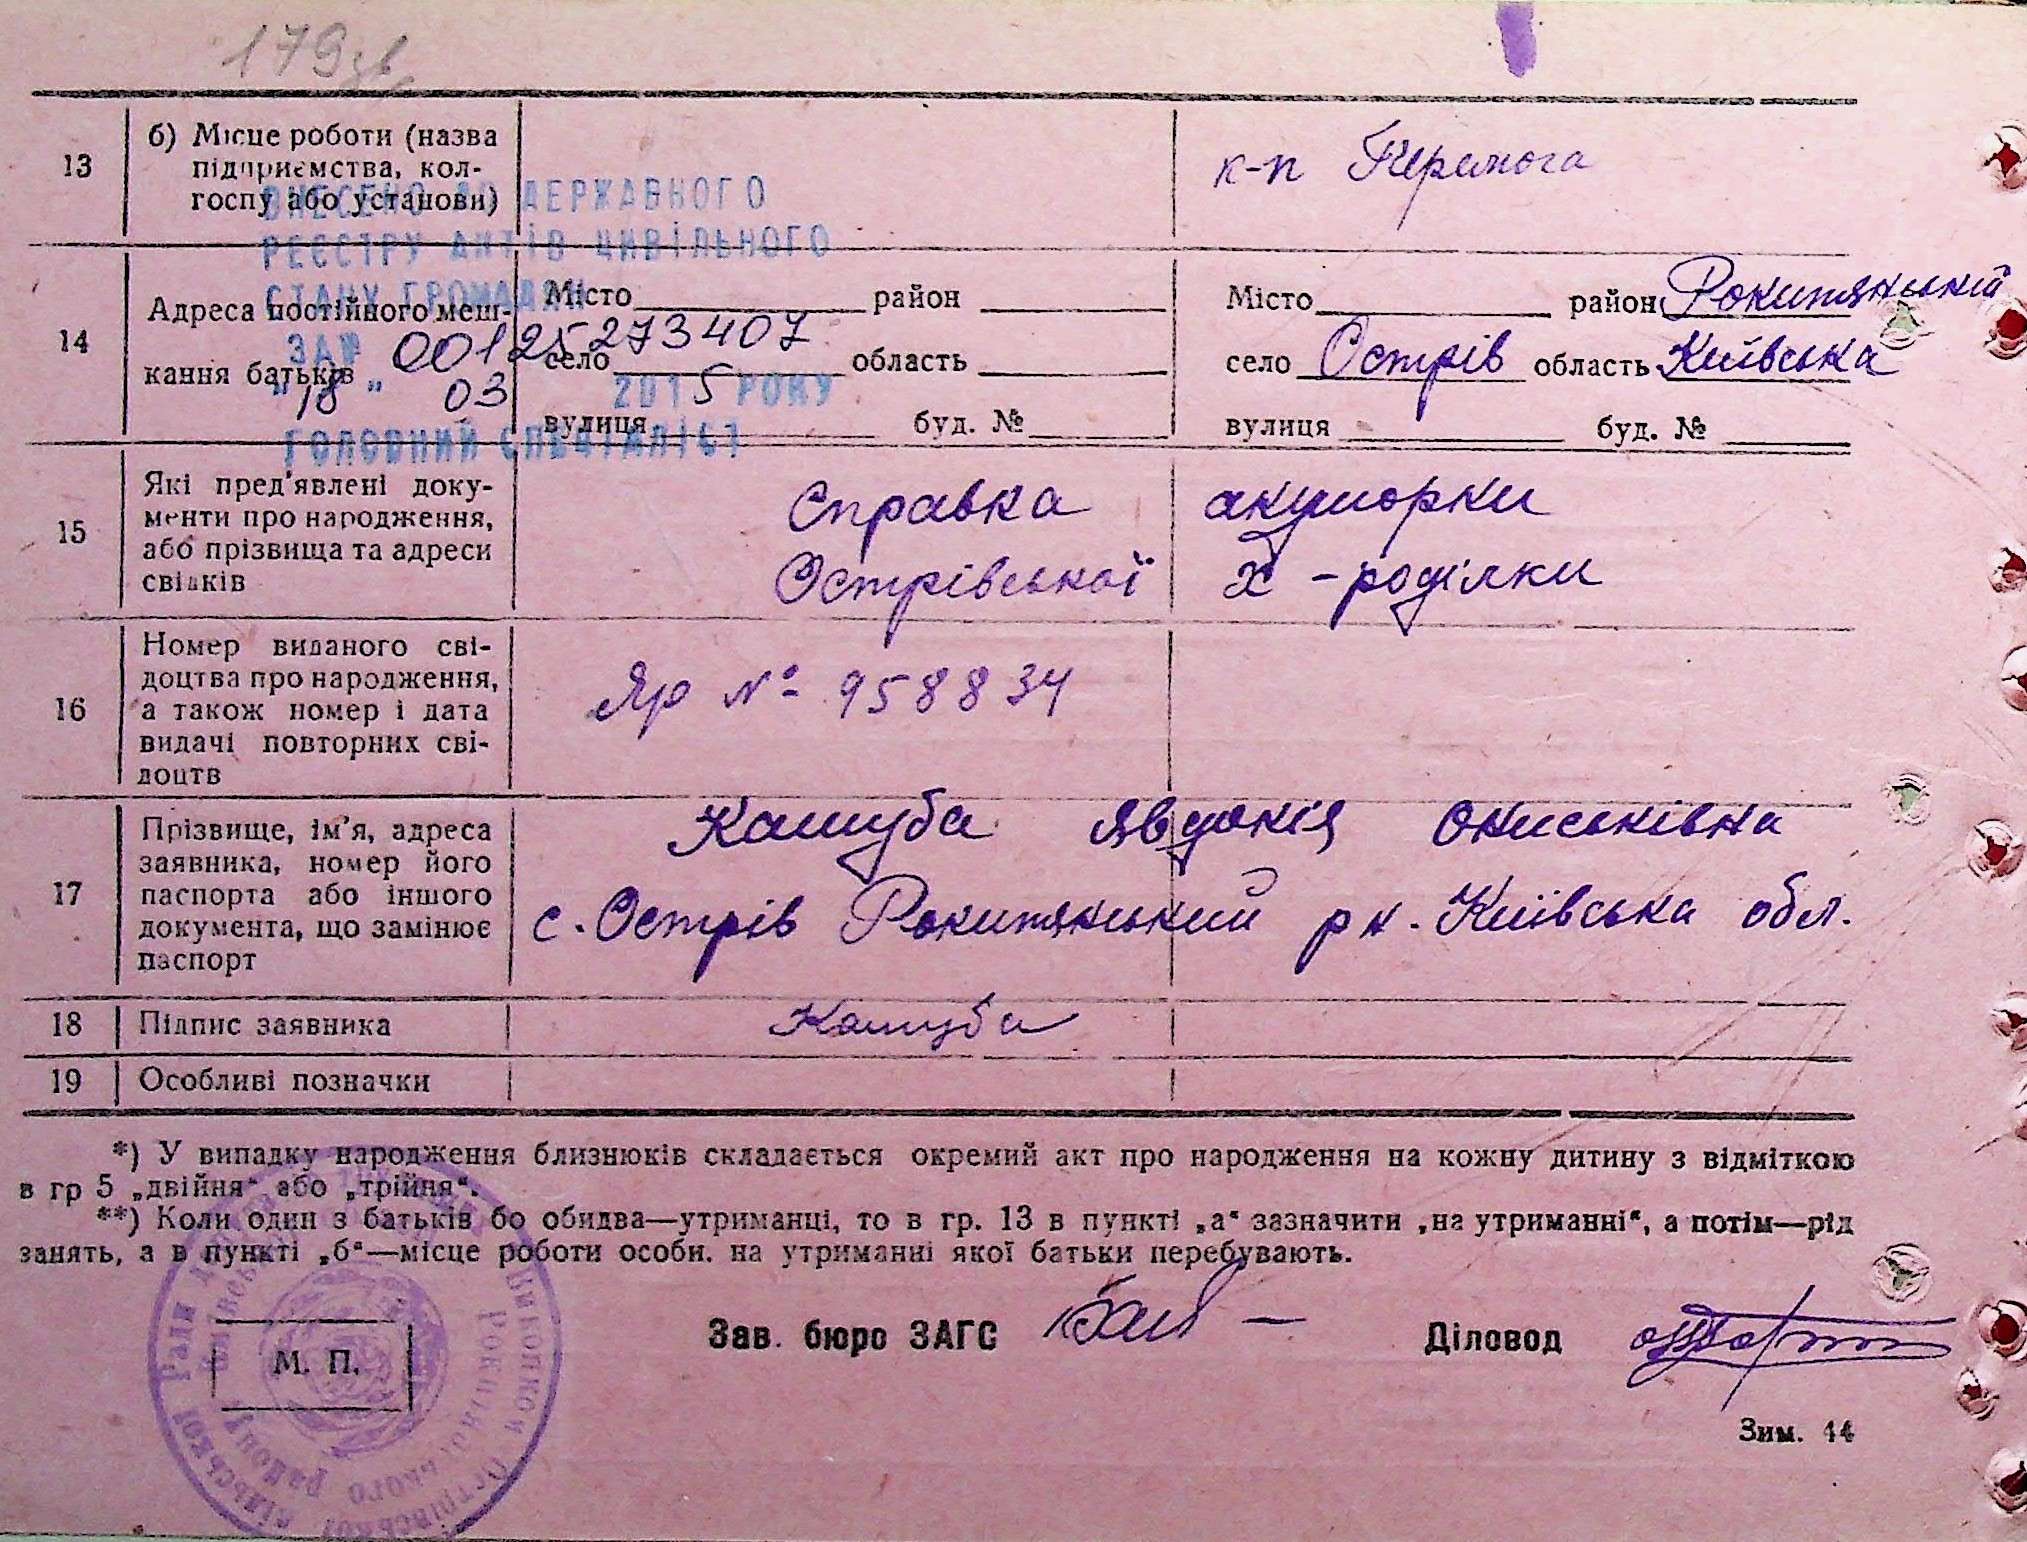 179зв.
13
б) Місце роботи (назва
підприємства, кол-
госпу або установи)
к-п Перемога
ВНЕСЕНО ДО ДЕРЖАВНОГО
РЕЄСТРУ АКТІВ ЦИВІЛЬНОГО
СТАНУ ГРОМАДЯН
ЗА № 00125273407
"18" 03 2015 РОКУ
ГОЛОВНИЙ СПЕЦІАЛІСТ
14
Адреса постійного меш-
кання батьків
Місто район
село область
вулиця буд. №
Місто район Рокитянський
село Острів область Київська
вулиця буд. №
15
Які пред'явлені доку-
менти про народження,
або прізвища та адреси
свідків
Справка акушорки
Острівської х-роділки
16
Номер виданого сві-
доцтва про народження,
а також номер і дата
видачі повторних сві-
доцтв
Яр № 958834
17
Прізвище, ім'я, адреса
заявника, номер його
паспорта або іншого
документа, що замінює
паспорт
Кашуба Явдокія Ониськівна
с. Острів Рокитянський рн. Київська обл.
18 Підпис заявника Кашуба
19 Особливі позначки
*) У випадку народження близнюків складається окремий акт про народження на кожну дитину з відміткою
в гр 5 „двійня“ або „трійня“.
**) Коли один з батьків бо обидва—утриманці, то в гр. 13 в пункті „а“ зазначити „на утриманні“, а потім—рід
занять, а в пункті „б“—місце роботи особи. на утриманні якої батьки перебувають.
М. П.
Зав. бюро ЗАГС
Діловод
Зим. 44